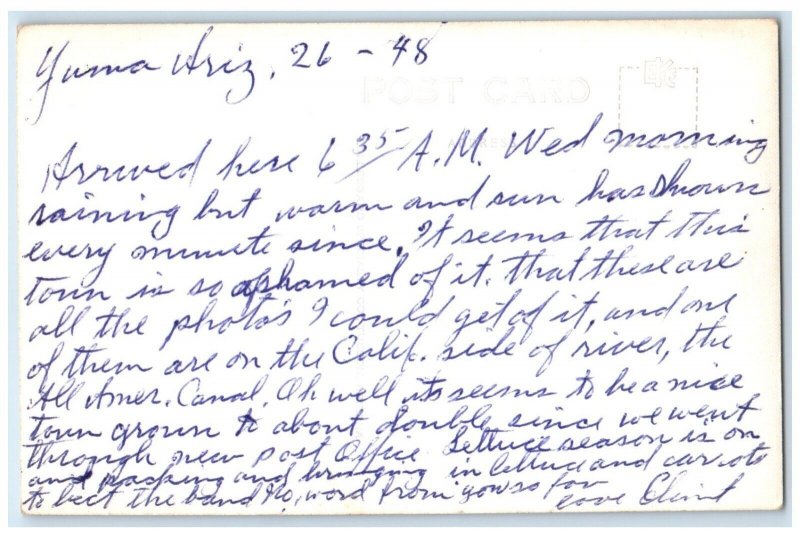 Yuma Ariz, 26 - 48
POST CARD
Arrived here 6 35/ A.M. Wed morning
raining but warm and sun has shown
every minute since. It seems that this
town is so ashamed of it. that these are
all the photo's I could get of it, and one
of them are on the Calif. side of river, the
All Amer. Canal. Oh well its seems to be a nice
town grown to about double since we went
through new post Office Lettuce season is on
and packing and bringing in lettuce and carrots
to beat the band No, word from you so far
Love Clint